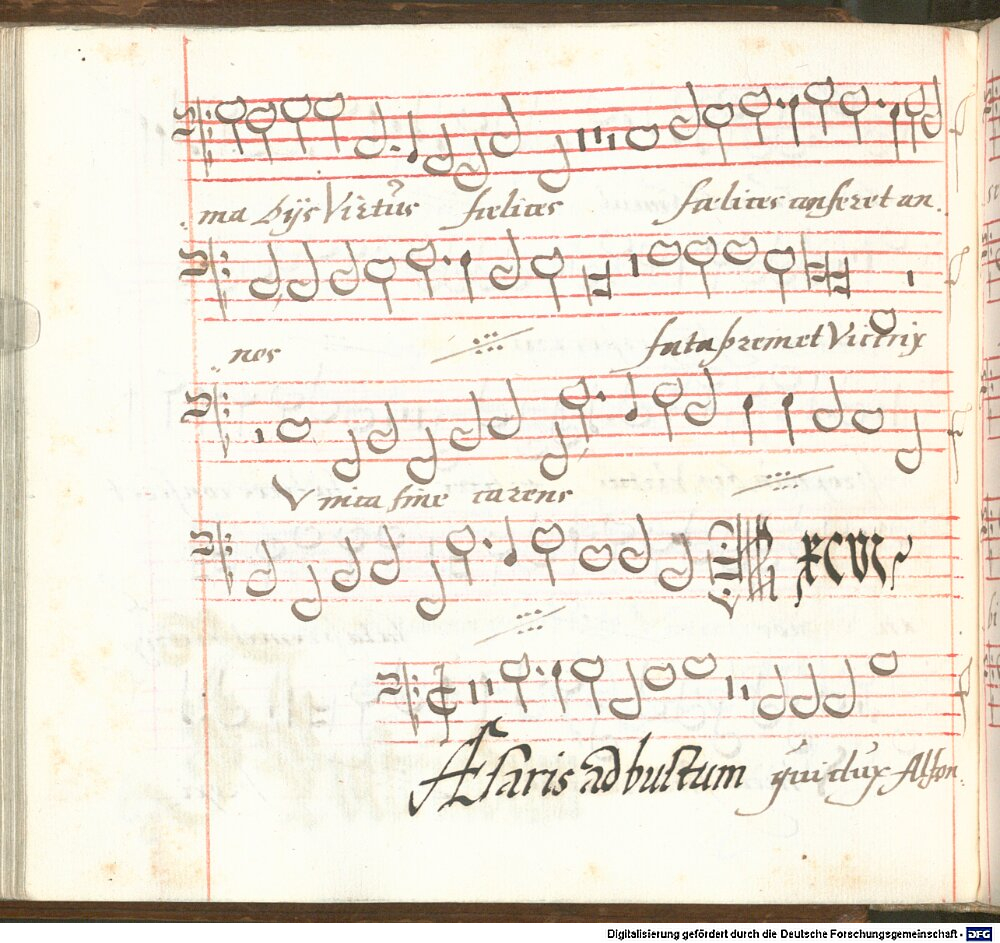 ma bijs Virtus fœlices fœlices conferet an
nos fata premet Victrix
Vnica fine carens
XCVI
Æsaris ad bustum qui dux Alfon
Digitalisierung gefördert durch die Deutsche Forschungsgemeinschaft - DFG